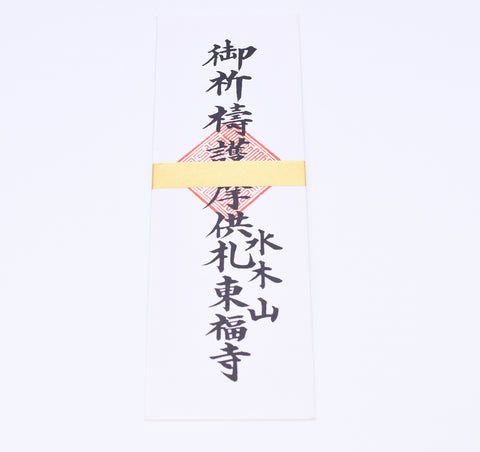 御祈禱護摩供札東福寺
水木山